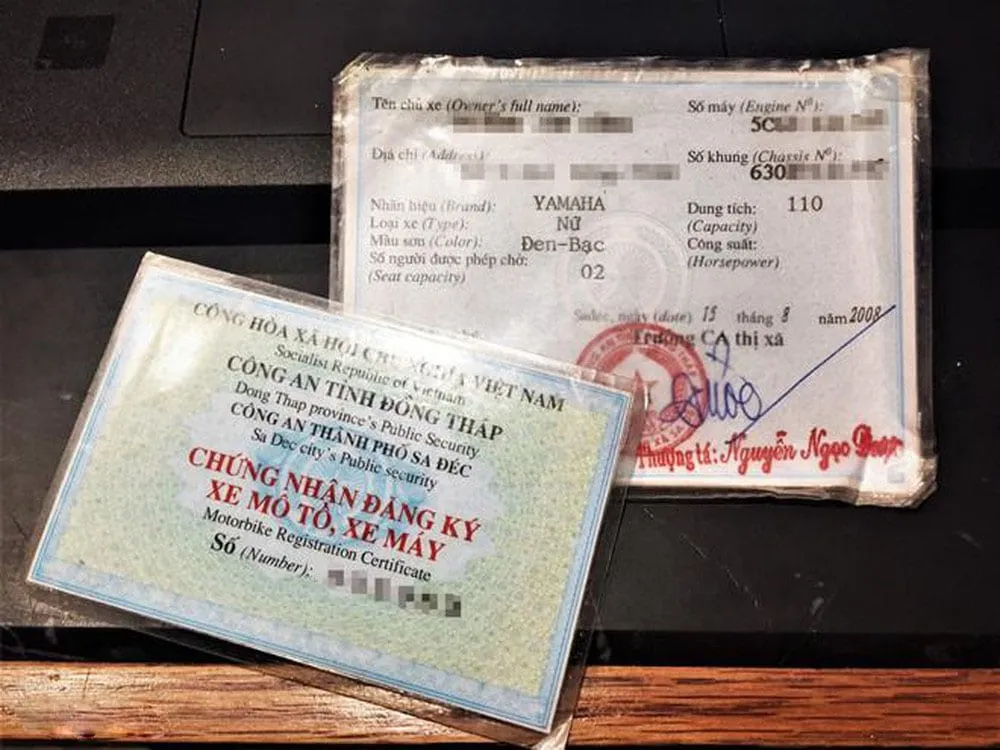 Tên chủ xe (Owner's full name):
Địa chỉ (Address)
Nhãn hiệu (Brand): YAMAHA
Loại xe (Type): Nữ
Màu sơn (Color): Đen-Bạc
Số người được phép chở: 02
(Seat capacity)
Số máy (Engine Nº):
5C
Số khung (Chassis Nº):
630
Dung tích: 110
(Capacity)
Công suất:
(Horsepower)
Sađéc, ngày (date) 15 tháng 8 năm 2008
Trưởng CA thị xã
Thượng tá: Nguyễn Ngọc
CỘNG HÒA XÃ HỘI CHỦ NGHĨA VIỆT NAM
Socialist Republic of Vietnam
CÔNG AN TỈNH ĐỒNG THÁP
Dong Thap province's Public Security
CÔNG AN THÀNH PHỐ SA ĐÉC
Sa Dec city's Public security
CHỨNG NHẬN ĐĂNG KÝ
XE MÔ TÔ, XE MÁY
Motorbike Registration Certificate
Số (Number):